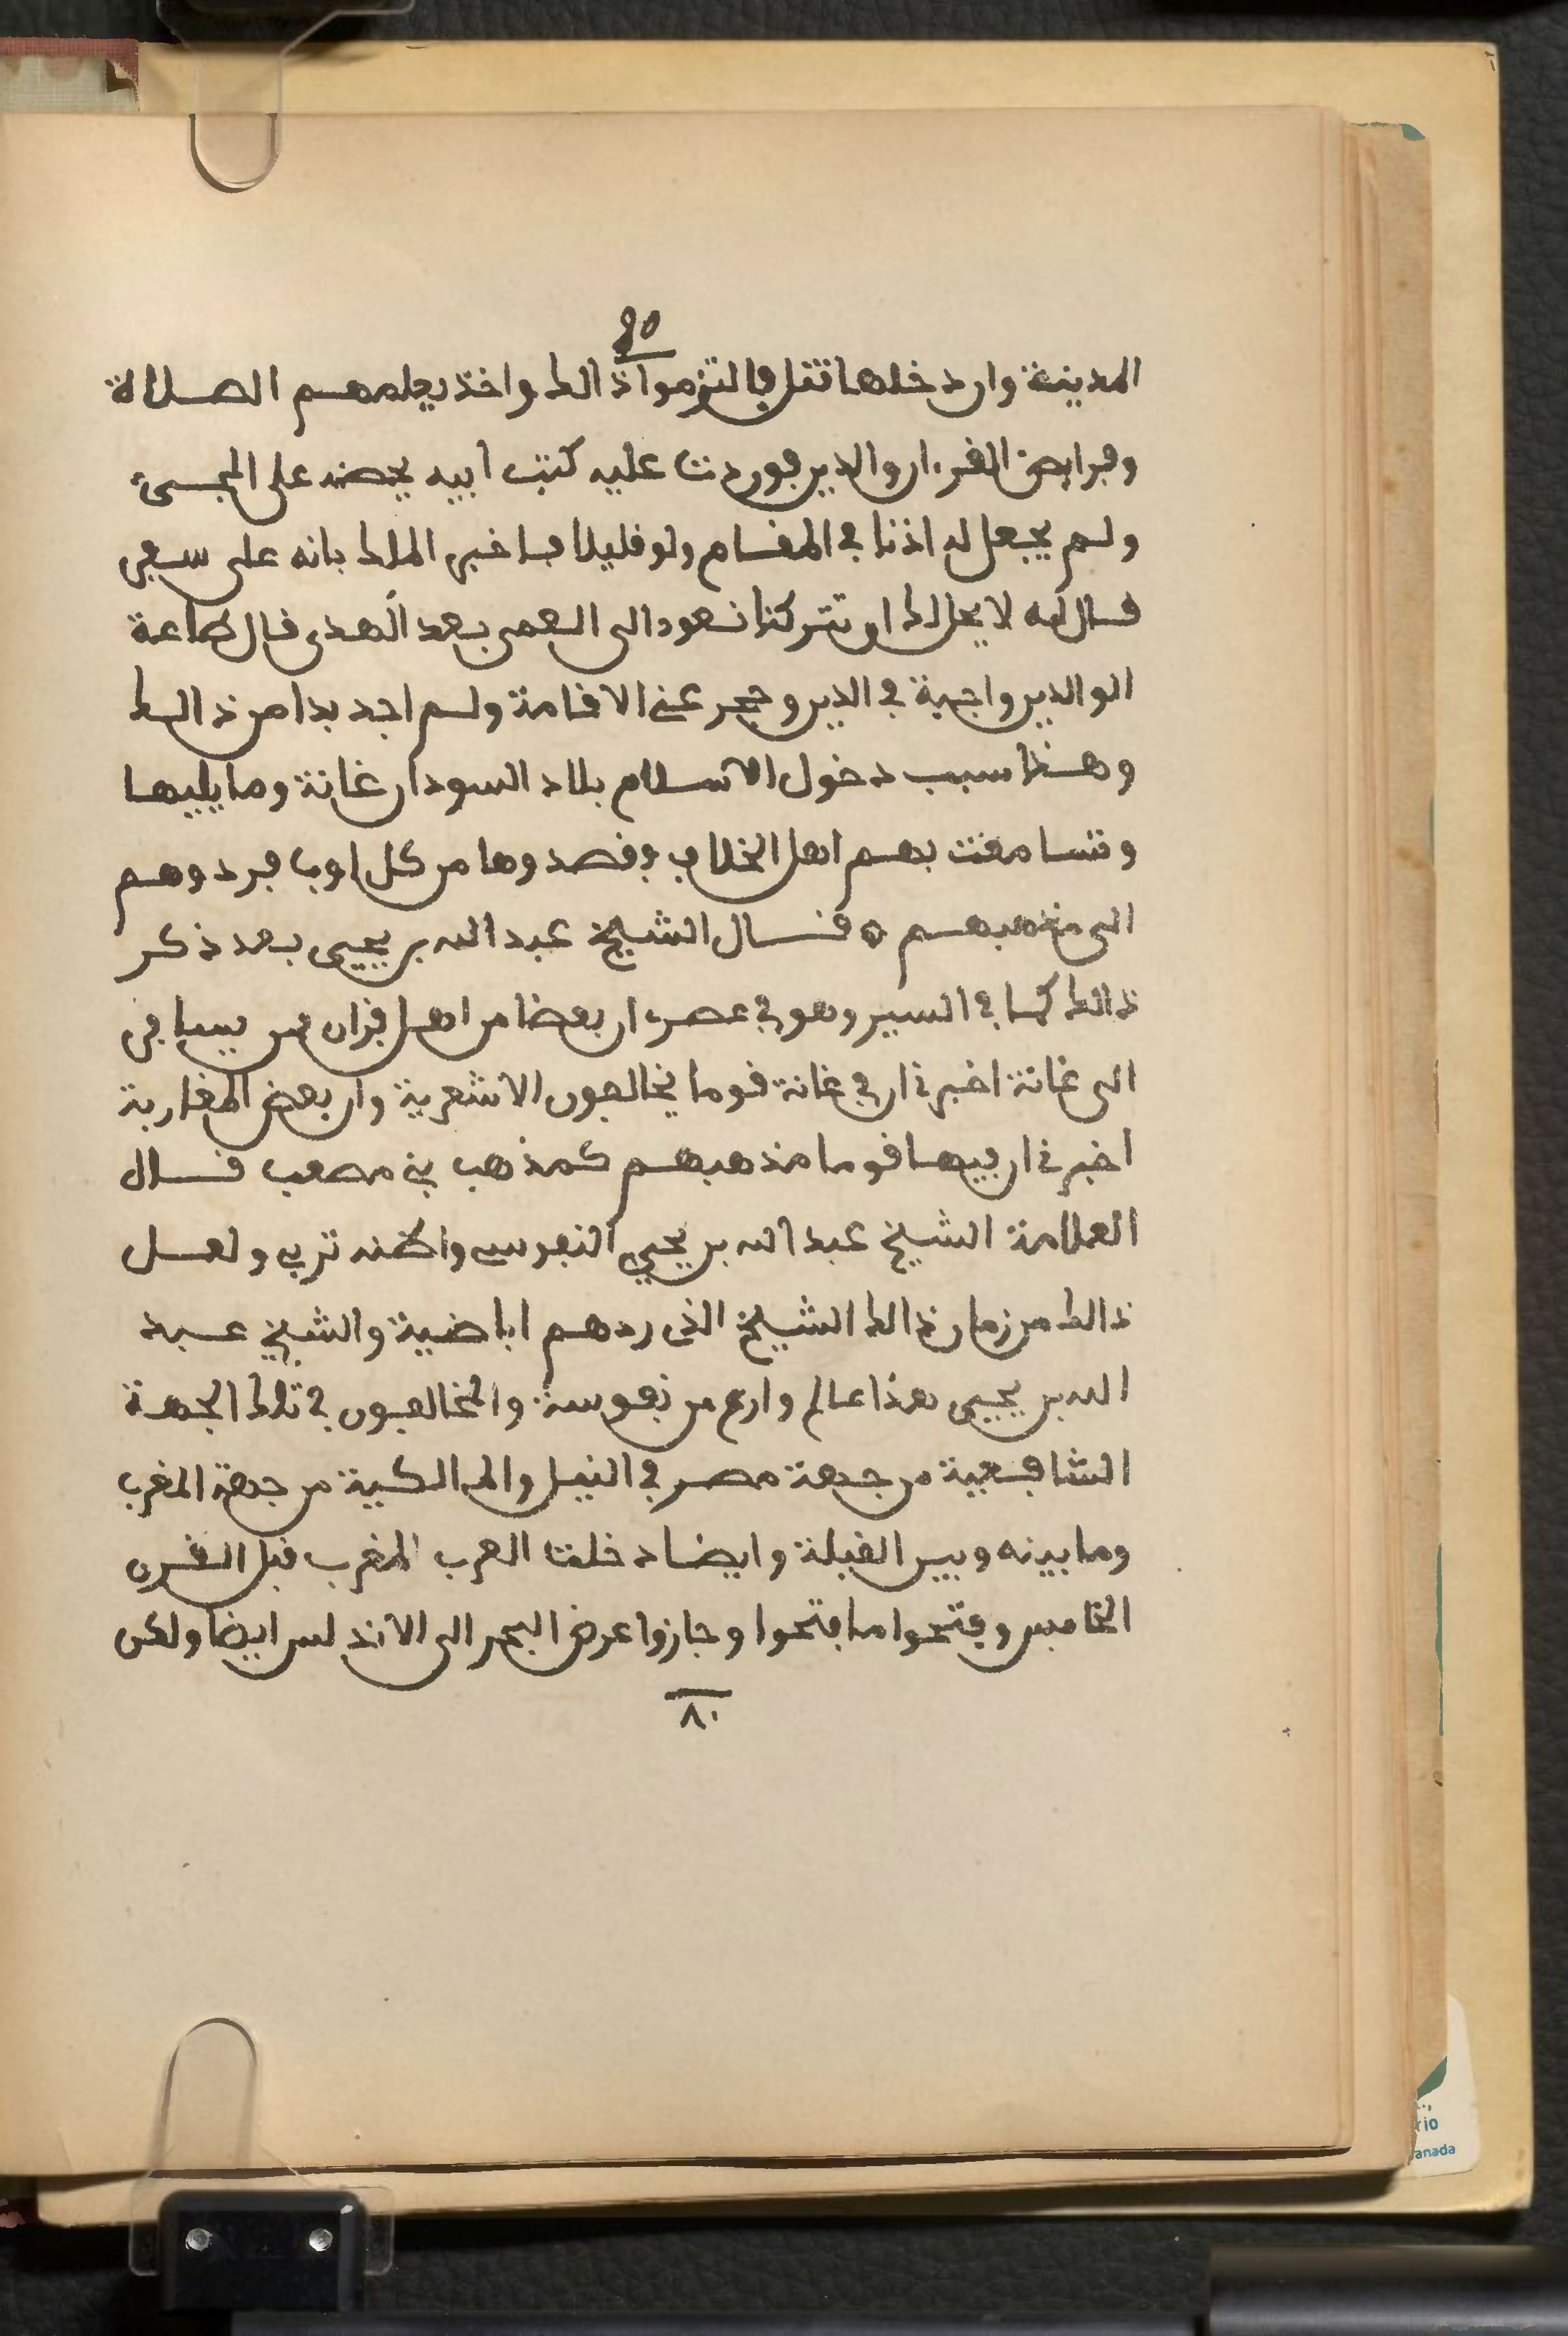 ٩٥
المدينة وان دخلها تقتل فالتزموا ذالك واخذ يعلمهم الصلاة
وفرايض القرءان والدين فوردت عليه كتب ابيه يحضه على المجىء
ولم يجعل له اذنا في المقام ولو قليلا فاخبر الملك بانه على سفر
فقال له لا يحل لك ان تتركنا نعود الى العمى بعد الهدى قال طاعة
الوالدين واجبة في الدين وحجر عني الاقامة ولم اجد بدا من ذالك
وهذا سبب دخول الاسلام بلاد السودان غانة وما يليها
وتسامعت بهم اهل الخلاف وقصدوها من كل اوب فردوهم
الى مذهبهم ه قال الشيخ عبد الله بن يحيى بعد ذكر
ذالك كما في السير وهو في عصره ان بعضا من اهل فزان ممن يسافر
الى غانة اخبرني ان في غانة قوما يخالفون الاشعرية وان بعض المغاربة
اخبرني ان فيها قوما مذهبهم كمذهب بني مصعب قال
العلامة الشيخ عبد الله بن يحيى النفوسي واظنه تزب ولعل
ذالك من زمان ذالك الشيخ الذى ردهم اباضية والشيخ عبد
الله بن يحيى هذا عالم وارع من نفوسة والمخالفون في تلك الجهة
الشافعية من جهة مصر في النيل والمالكية من جهة المغرب
وما بينه وبين القبلة وايضا دخلت العرب المغرب قبل القرن
الخامس وفتحوا ما فتحوا وجازوا عرض البحر الى الاندلس ايضا ولكن
٨٠
rio
anada